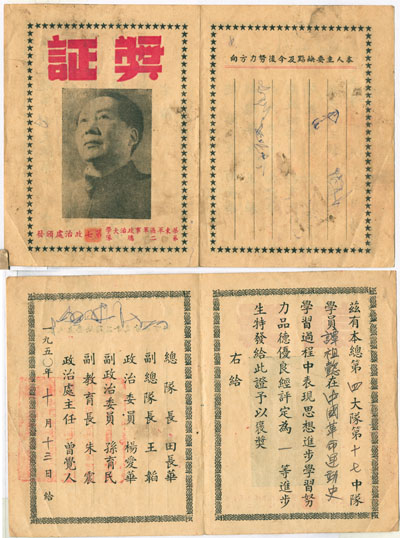 獎証
政治處頒發
本人主要缺點及今後努力方向
茲有本總第四大隊第十七中隊
學員譚祖 在中國革命運動史
學習過程中表現思想進步學習努
力品德優良經評定為一等進步
生特發給此證予以褒獎
右給
總隊長 田長華
副總隊長 王韜
政治委員 楊愛華
副政治委員 孫育民
副教育長 朱震
政治處主任 曾覺人
一九五〇年十月十三日給